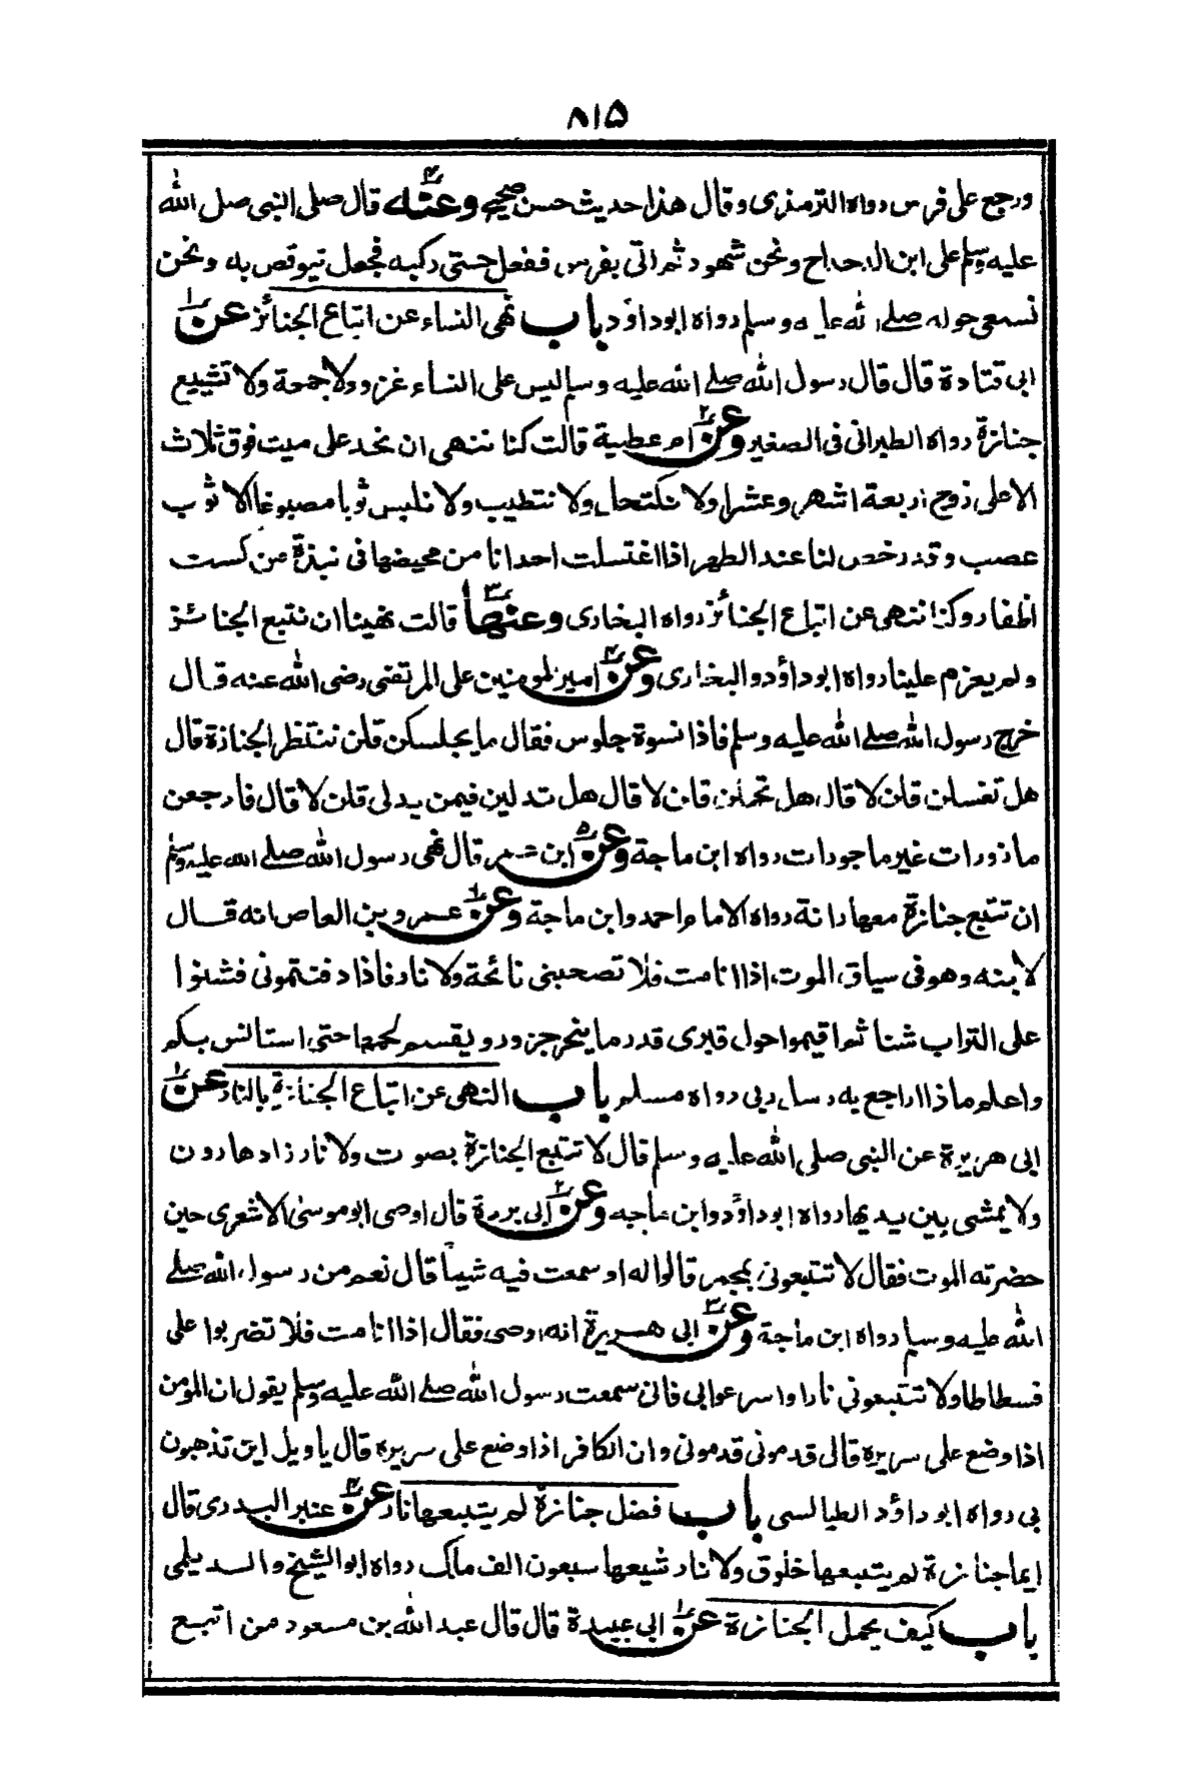 ۸۱۵
ورجع على فرس رواه الترمذى وقال هذا حديث حسن صحيح وعنه قال صلى النبى صلى الله
عليه وسلم على ابن الدحداح ونحن شهود ثم اتى بفرس ففعل حتى ركبه فجعل يتوقص به ونحن
نسعى حوله صلے الله عليه وسلم رواه ابوداؤد باب نهى النساء عن اتباع الجنائز عن
ابى قتادة قال قال رسول الله صلے الله عليه وسلم ليس على النساء غزو ولا جمعة ولا تشييع
جنازة رواه الطبرانى فى الصغير وعن ام عطية قالت كنا ننهى ان نحد على ميت فوق ثلاث
الا على زوج اربعة اشهر وعشرا ولا نكتحل ولا نتطيب ولا نلبس ثوبا مصبوغا الا ثوب
عصب وقد رخص لنا عند الطهر اذا اغتسلت احدانا من محيضها فى نبذة من كست
اظفار وكنا ننهى عن اتباع الجنائز رواه البخارى وعنها قالت نهينا ان نتبع الجنائز
ولم يعزم علينا رواه ابوداؤد والبخارى وعن امير المومنين على المرتضى رضى الله عنه قال
خرج رسول الله صلے الله عليه وسلم فاذا نسوة جلوس فقال ما يجلسكن قلن ننتظر الجنازة قال
هل تغسلن قلن لا قال هل تحملن قلن لا قال هل تدلين فيمن يدلى قلن لا قال فارجعن
مازورات غير ماجورات رواه ابن ماجة وعن ابن عمر قال نهى رسول الله صلے الله عليه وسلم
ان تتبع جنازة معها رانة رواه الامام احمد وابن ماجة وعن عمرو بن العاص انه قال
لابنه وهو فى سياق الموت اذا انا مت فلا تصحبنى نائحة ولا نار فاذا دفنتمونى فشنوا
على التراب شنا ثم اقيموا حول قبرى قدر ما ينحر جزور ويقسم لحمها حتى استانس بكم
واعلم ماذا اراجع به رسل ربى رواه مسلم باب النهى عن اتباع الجنازة بالنار عن
ابى هريرة عن النبى صلى الله عليه وسلم قال لا تتبع الجنازة بصوت ولا نار زاد هارون
ولا يمشى بين يديها رواه ابوداؤد وابن ماجه وعن ابى بردة قال اوصى ابو موسىٰ الاشعرى حين
حضرته الموت فقال لا تتبعونى بمجمر قالوا له او سمعت فيه شيئا قال نعم من رسول الله صلے
الله عليه وسلم رواه ابن ماجة وعن ابى هريرة انه اوصى فقال اذا انا مت فلا تضربوا على
فسطاطا ولا تتبعونى نارا واسرعوا بى فانى سمعت رسول الله صلے الله عليه وسلم يقول ان المومن
اذا وضع على سريره قال قدمونى قدمونى وان الكافر اذا وضع على سريره قال ياويل اين تذهبون
بى رواه ابوداؤد الطيالسى باب فضل جنازة لم يتبعها نار عن عنبر البدرى قال
ايما جنازة لم يتبعها خلوق ولا نار شيعها سبعون الف ملك رواه ابو الشيخ والديلمى
باب كيف يحمل الجنازة عن ابى عبيدة قال قال عبد الله بن مسعود من اتبع